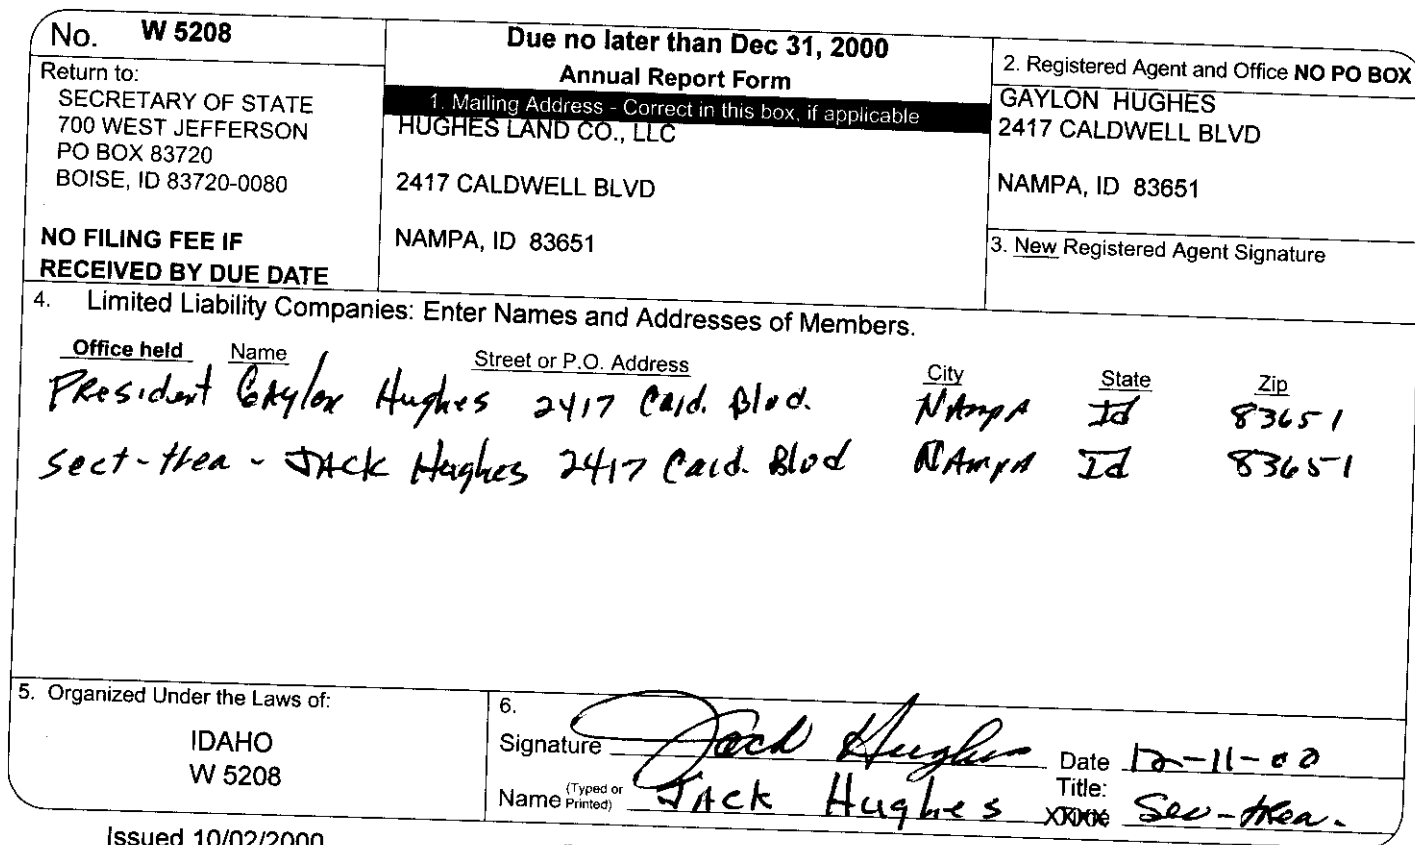 No. W 5208
Return to:
SECRETARY OF STATE
700 WEST JEFFERSON
PO BOX 83720
BOISE, ID 83720-0080
NO FILING FEE IF
RECEIVED BY DUE DATE
Due no later than Dec 31, 2000
Annual Report Form
1. Mailing Address - Correct in this box, if applicable
HUGHES LAND CO., LLC
2417 CALDWELL BLVD
NAMPA, ID 83651
2. Registered Agent and Office NO PO BOX
GAYLON HUGHES
2417 CALDWELL BLVD
NAMPA, ID 83651
3. New Registered Agent Signature
4. Limited Liability Companies: Enter Names and Addresses of Members.
Office held Name Street or P.O. Address City State Zip
President Gaylon Hughes 2417 Cald. Blvd. Nampa Id 83651
Sect-trea - Jack Hughes 2417 Cald. Blvd Nampa Id 83651
5. Organized Under the Laws of:
IDAHO
W 5208
6.
Signature Jack Hughes Date 12-11-00
Name (Typed or Printed) Jack Hughes Title: Sec-trea.
Issued 10/02/2000